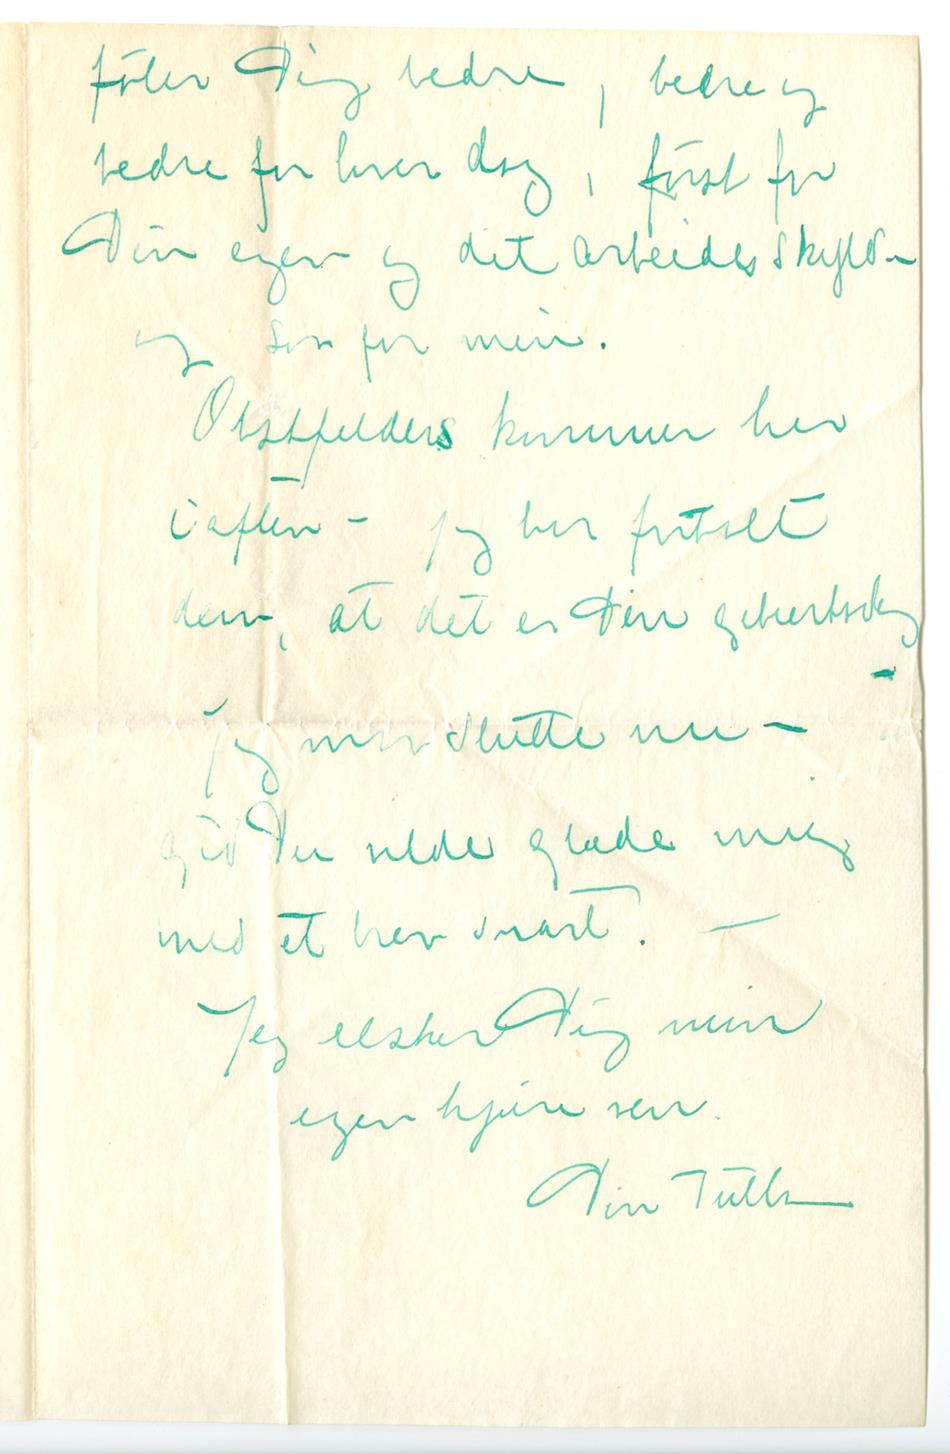 føler Dig bedre, bedre og
bedre for hver dag, først for
Din egen og dit arbeides skyld –
og så for min.
Obstfelders kommer her
iaften – jeg har fortalt
dem, at det er Din geburtsdag
–
Jeg må slutte nu –
gid Du vilde glæde mig
med et brev snart. –
Jeg elsker Dig min
egen kjære ven.
Din Tulla